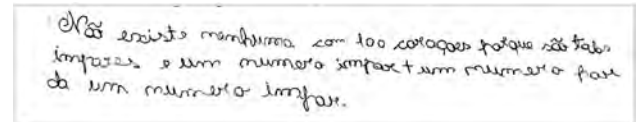 Não existe nenhuma com 100 corações porque são tods
impares e um numero impar + um numero par
da um numero impar.